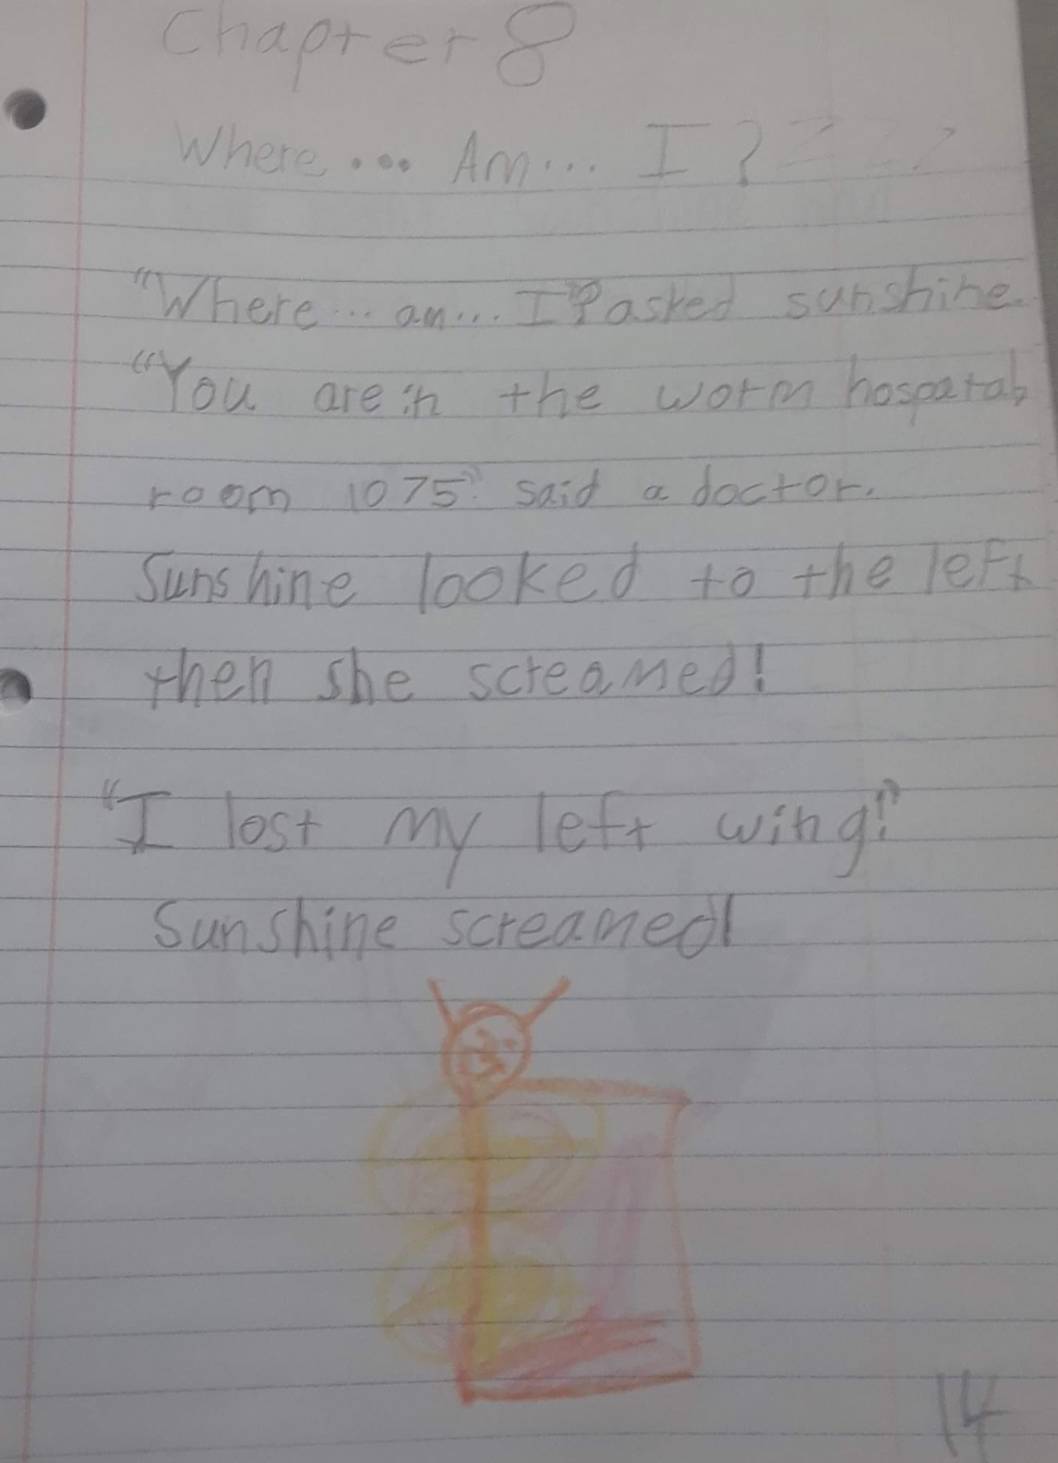 Chapter 8
Where... Am... I?
"Where... am... I? asked sunshine.
"You are in the worm hospatab
room 1075" said a doctor.
Sunshine looked to the left
then she screamed!
"I lost my left wing!"
Sunshine screamed!
14